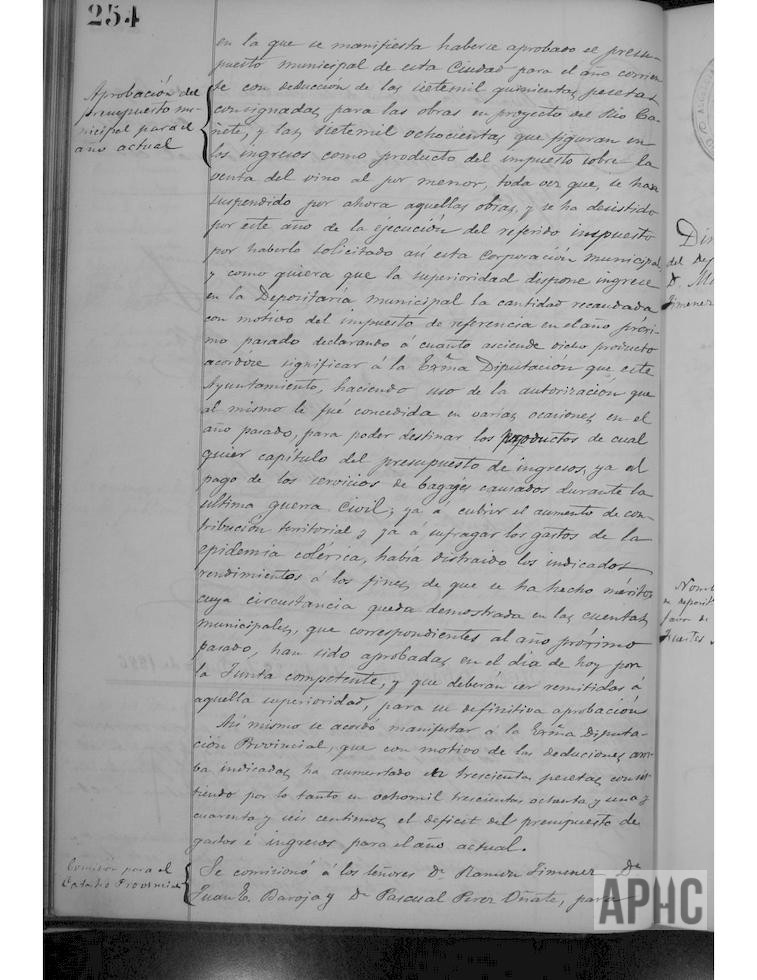 254
Aprobación del
presupuesto mu-
nicipal para el
año actual
en la que se manifiesta haberse aprobado el presu-
puesto municipal de esta Ciudad para el año corrien
te con deducción de las sietemil quinientas pesetas
consignadas para las obras en proyecto del Rio Ca-
ñete, y las sietemil ochocientas que figuran en
los ingresos como producto del impuesto sobre la
venta del vino al por menor, toda vez que, se han
suspendido por ahora aquellas obras, y se ha desistido
por este año de la ejecución del referido impuesto
por haberlo solicitado asi esta Corporación municipal,
y como quiera que la superioridad dispone ingrese
en la Depositaría municipal la cantidad recaudada
con motivo del impuesto de referencia en el año próxi-
mo pasado declarando á cuanto asciende dicho producto
acordóse significar á la Exma Diputación que este
Ayuntamiento, haciendo uso de la autorización que
al mismo le fué concedida en varias ocasiones en el
año pasado, para poder destinar los productos de cual
quier capítulo del presupuesto de ingresos, ya al
pago de los servicios de bagajes causados durante la
última guerra civil, ya a cubrir el aumento de con-
tribución territorial y ya á sufragar los gastos de la
epidemia colérica, había distraido los indicados
rendimientos á los fines de que se ha hecho mérito,
cuya circustancia queda demostrada en las cuentas
municipales, que correspondientes al año próximo
pasado, han sido aprobadas en el día de hoy por
la Junta competente, y que deberán ser remitidas á
aquella superioridad, para su definitiva aprobación
Asi mismo se acordó manifestar á la Exma Diputa-
ción Provincial, que con motivo de las deducciones arri-
ba indicadas ha aumentado en trescientas pesetas, consis-
tiendo por lo tanto en ochomil trescientas ochenta y una y
cuarenta y seis centimos el deficit del presupuesto de
gastos é ingresos para el año actual.
Comisión para el
Catastro Provincial
Se comisionó á los señores Dn Ramon Jimenez Dn
Juan E. Baroja y Dn Pascual Perez Oñate, para
Dim
del
D.
Jimenez
Nomb
favor de
APHC